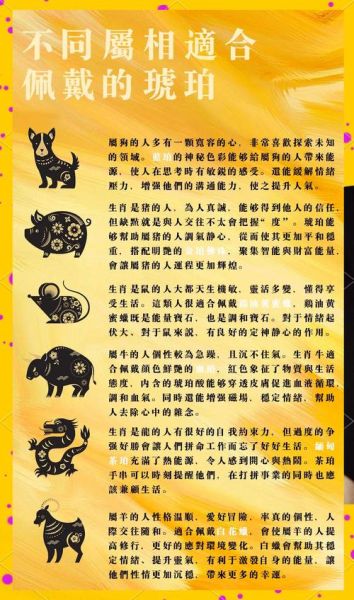 不同屬相適合
佩戴的琥珀
屬狗的人多有一顆寬容的心，非常喜歡探索未知
的領域。藍珀的神秘色彩能夠給屬狗的人帶來能
源，使人在思考時有敏銳的感受。還能緩解情緒
壓力，增强他們的溝通能力，使之提升人氣。
生肖是猪的人，為人真誠，能够得到他人的信任，
但缺點就是與人交往不太會把握“度”。琥珀能
够幫助屬豬的人調氣靜心，從而使其更加平和穩
重，搭配明艷的，聚集智能與財富能量，
會讓屬猪的人運程更加輝煌。
生肖是鼠的人大都天生機敏，靈活多變，懂得享
受生活。這類人很適合佩戴鷄油黄蜜蠟，鷄油黄
蜜蠟既是能量寶石，也是調和寶石。對于情緒起
伏大、對于鼠來說，有良好的定神静心的作用。
屬牛的人個性較為急躁，且沉不住氣。生肖牛適
合佩戴顔色鮮艷的血珀，紅色象征了物質與生活
態度，内含的琥珀酸能够穿透皮膚促進血液循環，
調和血氣。同時還能增强磁場，穩定情緒，幫助
人去除心中的雜念。
生肖是龍的人有很好的自我約束力，但過度的争
强好勝會讓人們拼命工作而忘了好好生活。緬甸
茶珀充滿了熱能源，令人感到開心與熱鬧。茶珀
手串可以時刻提醒他們，在打拼事業的同時也應
該兼顧生活。
屬羊的人性格温順，愛好冒險，率真的個性，人
際交往隨和。適合佩戴白花蠟，會使屬羊的人提
高修行，更好的應對環境變化。白蠟會幫助其穩
定情緒、提升靈氣，有利于激發自身的能量，讓
他們性情更加沉穩，帶來更多的幸運。